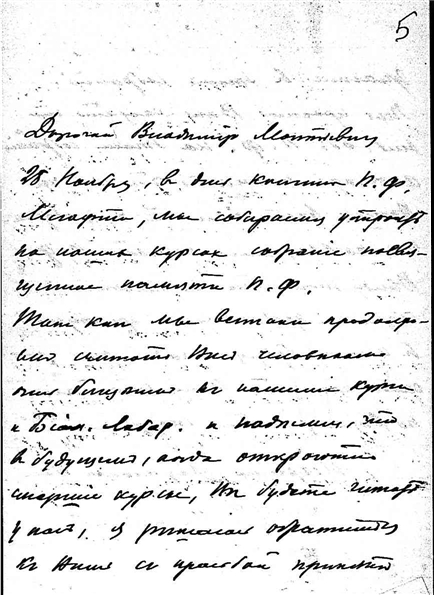 5
Дорогой Владимир
28 Ноября, в день кончины П. Ф.
Лесгафта, мы собираемся устроить
на наших курсах собрание посвя-
щенное памяти П. Ф.
Так как мы все таки продолжа-
ем считать Вас человеком
близким к нашим курсам
и Биол. Лабор. и надеемся, что
в будущем, когда откроются
старшие курсы, Вы будете читать
у нас, я решилась обратиться
к Вам с просьбой принять